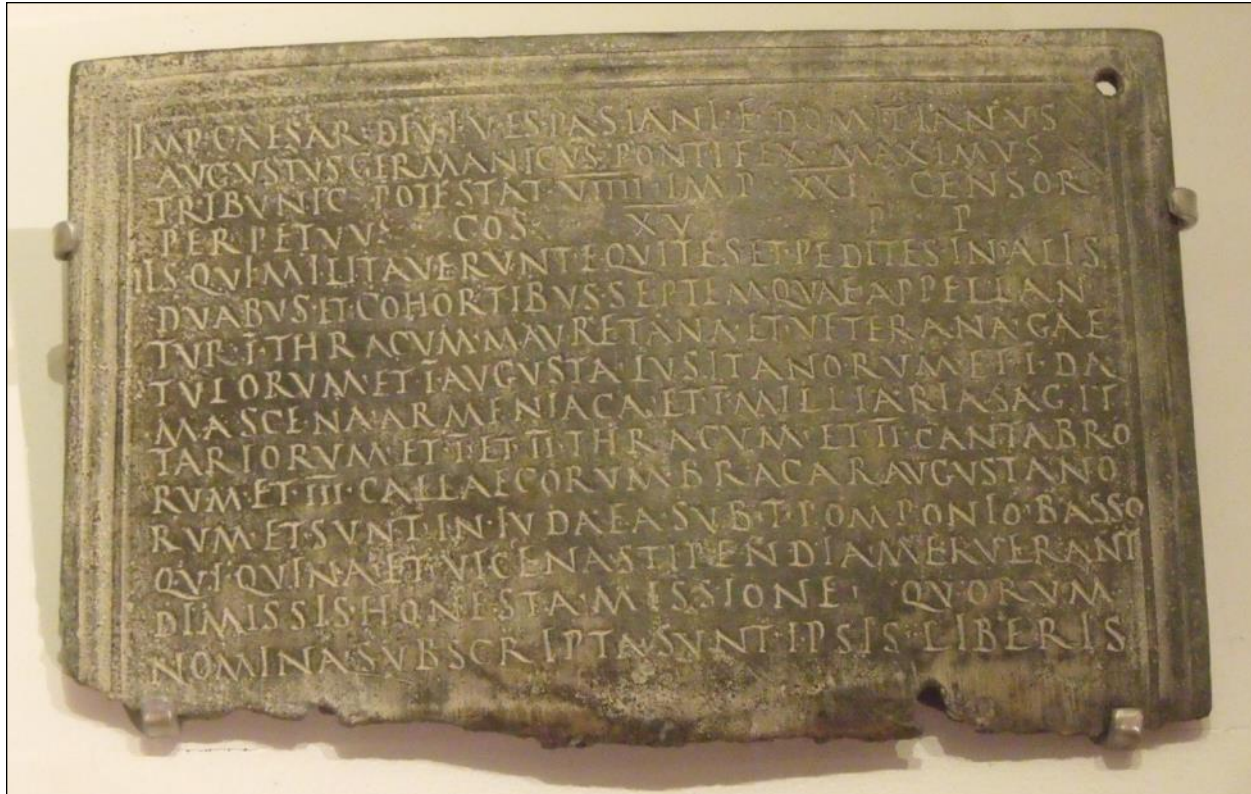 IMP·CAESAR·DIVI·VESPASIANI·F·DOMITIANVS
AVGVSTVS GERMANICVS·PONTIFEX MAXIMVS
TRIBVNIC POTESTAT V̅I̅I̅I̅I̅ IMP X̅X̅I̅ CENSOR
PERPETVVS COS X̅V̅ P P
IIS QVI MILITAVERVNT EQVITES ET PEDITES IN ALIS
DVABVS·ET COHORTIBVS·SEPTEM QVAE APPELLAN
TVR·I̅·THRACVM·MAVRETANA·ET·VETERANA·GAE
TVLORVM ET I̅·AVGVSTA·LVSITANORVM ET I̅·DA
MASCENA·ARMENIACA·ET I̅ MILLIARIA SAGIT
TARIORVM·ET I̅·ET·I̅I̅·THRACVM·ET I̅I̅·CANTABRO
RVM·ET·I̅I̅I̅·CALLAECORVM BRACARAVGVSTANO
RVM·ET SVNT·IN·IVDAEA SVB·T·POMPONIO·BASSO
QVI QVINA·ET·VICENA STIPENDIA MERVERANT
DIMISSIS·HONESTA·MISSIONE· QVORVM
NOMINA·SVBSCRIPTA SVNT·IPSIS·LIBERIS